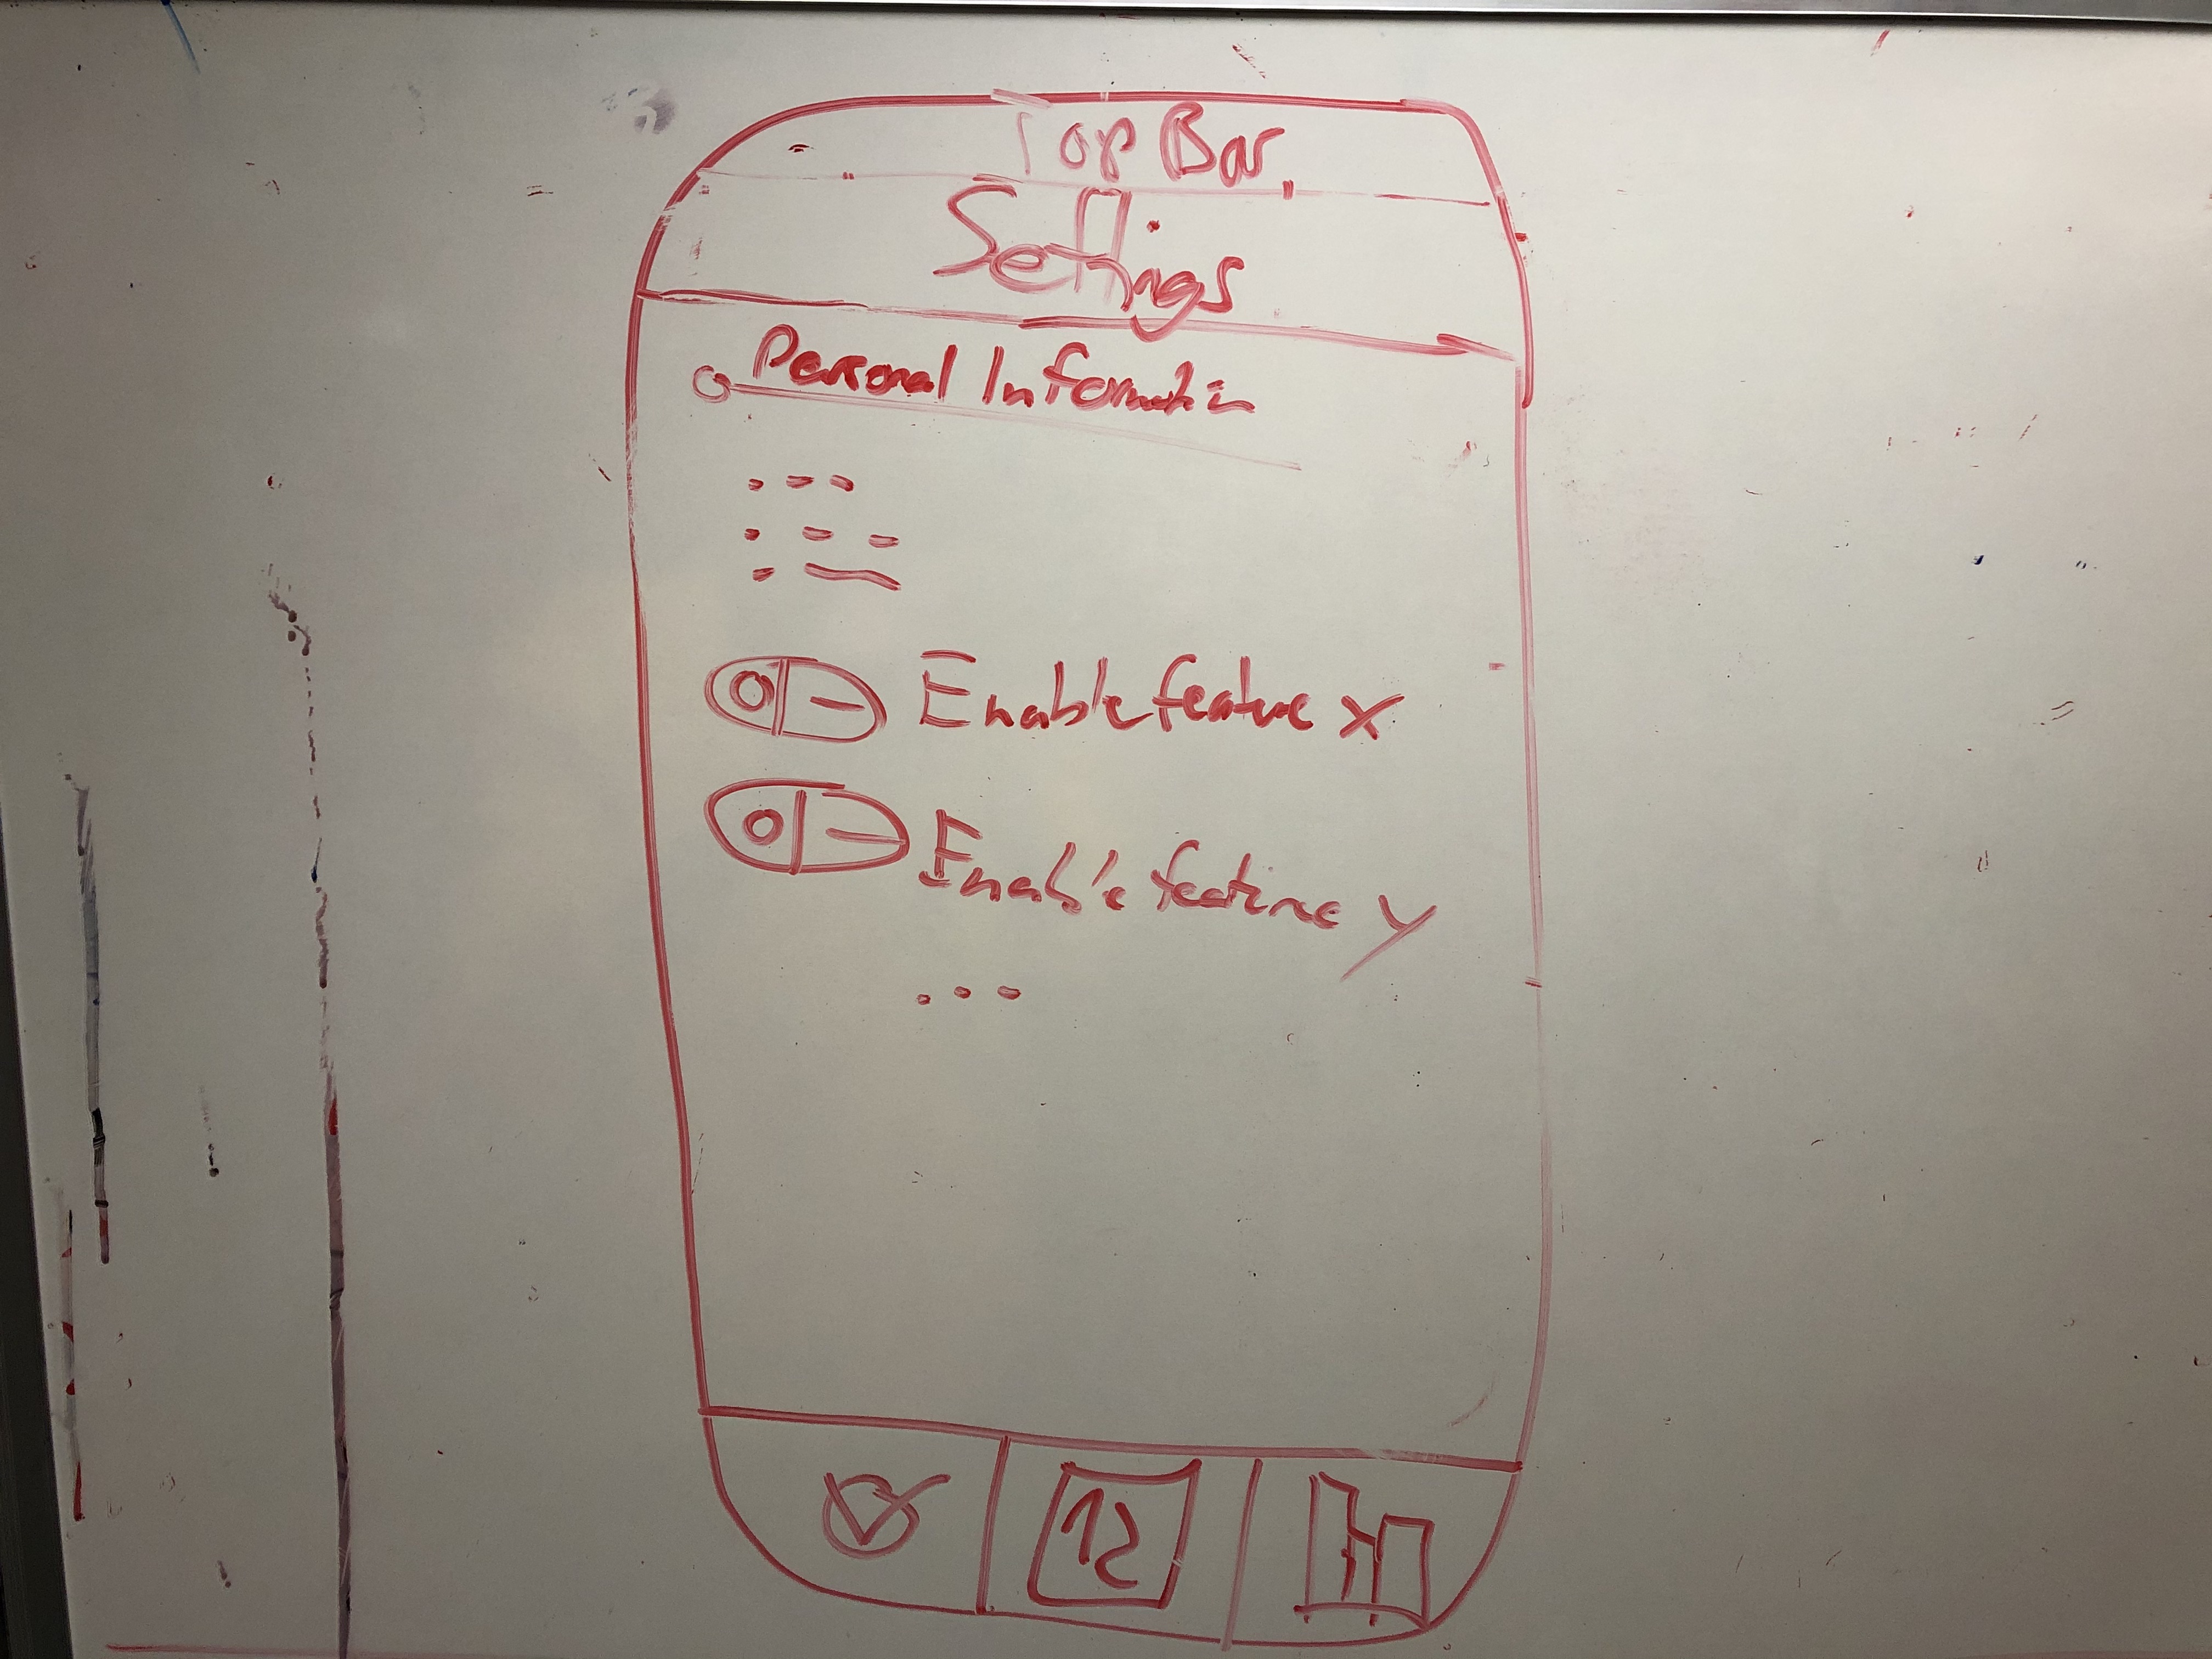 Top Bar
Settings
Personal Information
...
Enable feature X
Enable feature y
...
12